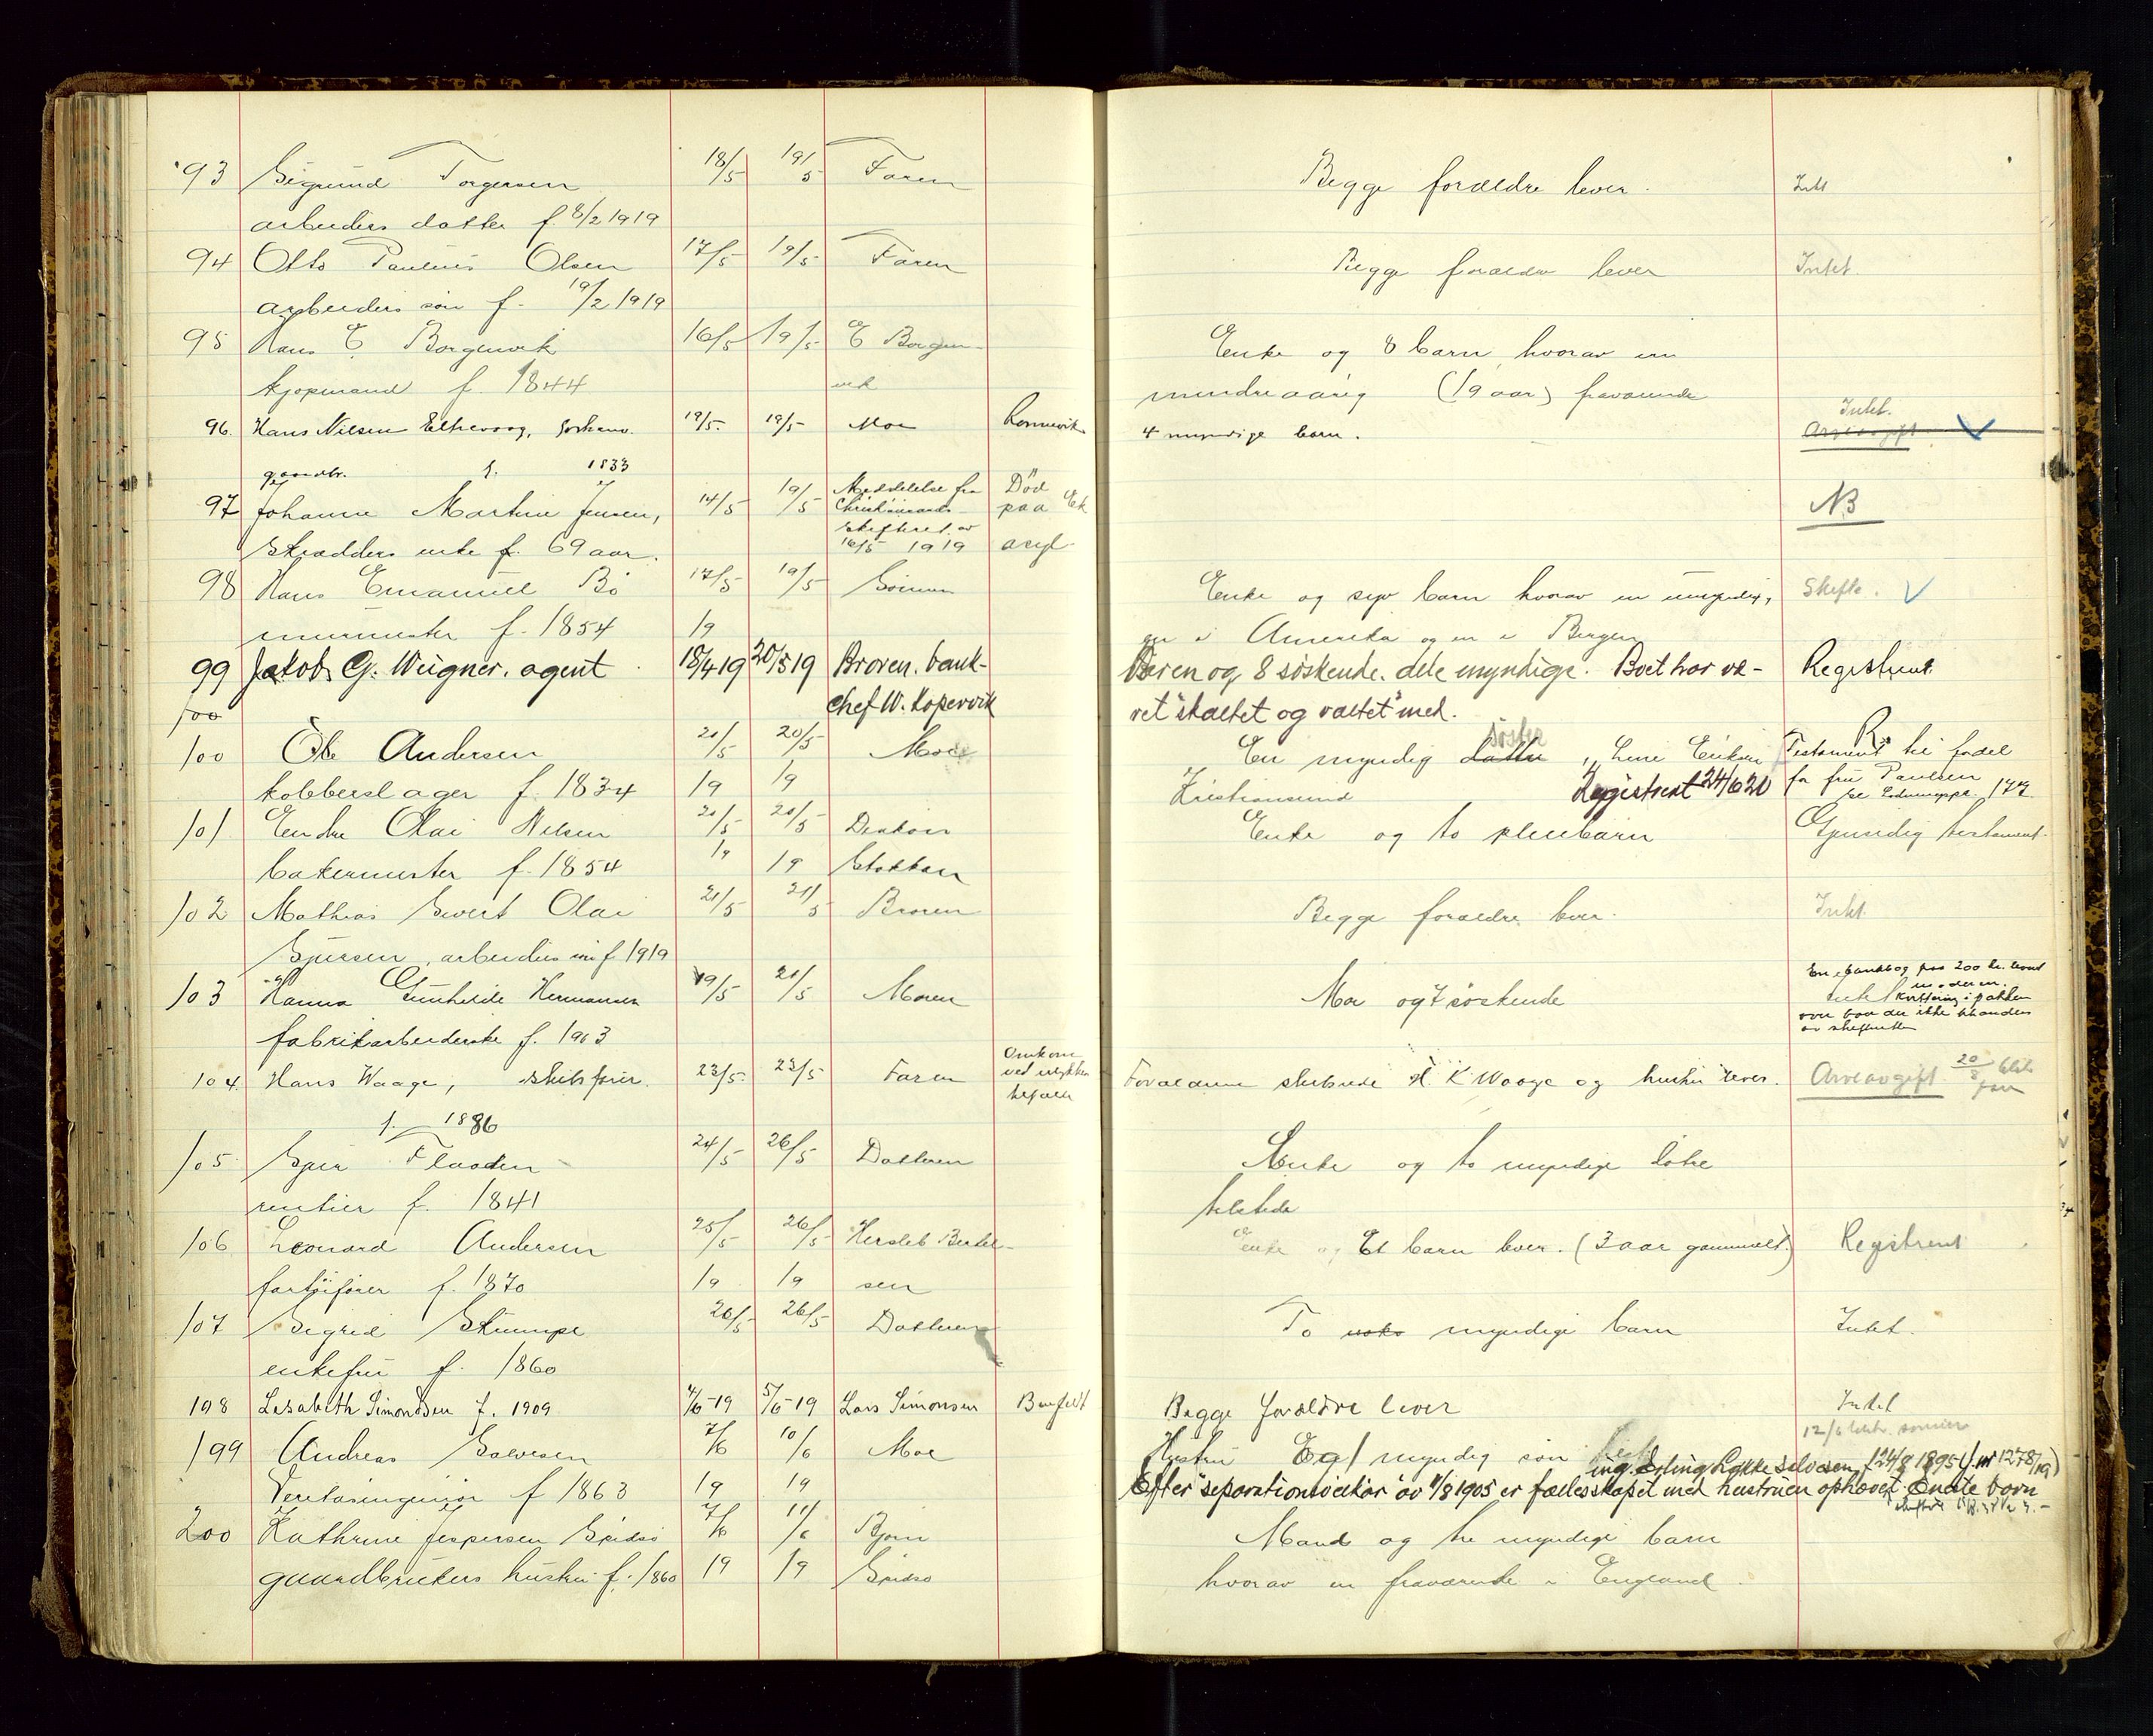 93 Sigrund Torgersen 18/5 19/5 Faren Begge forældre lever. Intet
arbeiders datter f. 8/2 1919
94 Otto Paulenis Olsen 17/5 19/5 Faren Begge forældre lever Intet.
arbeiders søn f. 19/2 1919
95 Hans E. Borgenvik 16/5 19/5 E Borgen- Enke og 8 barn hvorav en
kjøpmand f. 1844 vik mindreaarig (19 aar) fraværende
96. Hans Nilsen Eltrevaag, 19/5. 19/5 Moe 4 myndige barn. Intet. Arveavgift
gaardbr. f. 1833
97 Johanne Martine Jensen, 14/5 19/5 Meddelelse fra Død NB
Christianssands paa
skrædders enke f. 69 aar. skifteret av
16/5 1919 asyl
98 Hans Emanuel Bö 17/5 19/5 Sönnen Enke og syv barn hvorav en umyndig, Skifte.
murmester f. 1854 19 en i Amerika og en i Bergen
99 Jakob G. Weigner. agent 18/4 19 20/5 19 Broren. bank- Moren og 8 søskende. alle myndige. Boet har væ- Registrert
100 chef W. Kopervik ret "skaltet og valtet" med.
100 Ole Andersen 20/5 20/5 Moe En myndig datter søster, Lene Eriksen Testament til fadel
kobberslager f. 1834 19 19 Kristiansund Registrert 24/6 20 for fru Paulsen
101 Endre Olai Nilsen 20/5 20/5 Diakon Enke og to pleiebarn Gjensidig testament.
bakermester f. 1854 19 19 Stokkan
102 Mathias Sivert Olai 21/5 21/5 Broren Begge forældre lever. Intet.
Sjursen, arbeiders søn f 1919
103 Hanna Gunhilde Hermansen 19/5 21/5 Moren Mor og 7 søskende En bankbog paa 200 kr. levert
moderen.
Intet Kvittering i pakken
fabrikarbeiderske f. 1903 over boer der ikke behandles
av skifteretten
104. Hans Waage, skibsfører. 23/5. 23/5 Faren Omkom ved ulykkes tilfælle Forældrene skibsrede H. K. Waage og hustru lever. Arveavgift 20/8
f. 1886
105 Sjur Flaaden 24/5 26/5 Datteren Enke og to myndige døtre
rentier f. 1841 tilstede
106 Leonard Andersen 25/5 26/5 Hersleb Bertel- Enke og Et barn lever. (3 aar gammelt.) Registrert
fartøifører f. 1870 19 19 sen
107 Sigrid Stumpe 26/5 26/5 Datteren To myndige barn Intet.
enkefru f. 1860
108 Lisabeth Simondsen f. 1909 4/6-19 5/6-19 Lars Simonsen Benfeldt Begge forældre lever Intet
199 Andreas Salvesen 7/6 10/6 Moe Hustru Og 1 myndig søn
ing. Erling Lykke Salvesen f 24/8 1895 (J.nr 1278/19)
Veretasingeniør f 1863 19 19 Efter "separationsvilkår" av 11/8 1905 er fællesskapet med hustruen ophævet. Eneste barn
200 Kathrine Jespersen Spidsø 7/6 11/6 Bjørn Mand og tre myndige barn
gaardbrukers hustru f. 1860 19 19 Spidsø hvorav en fraværende i England.